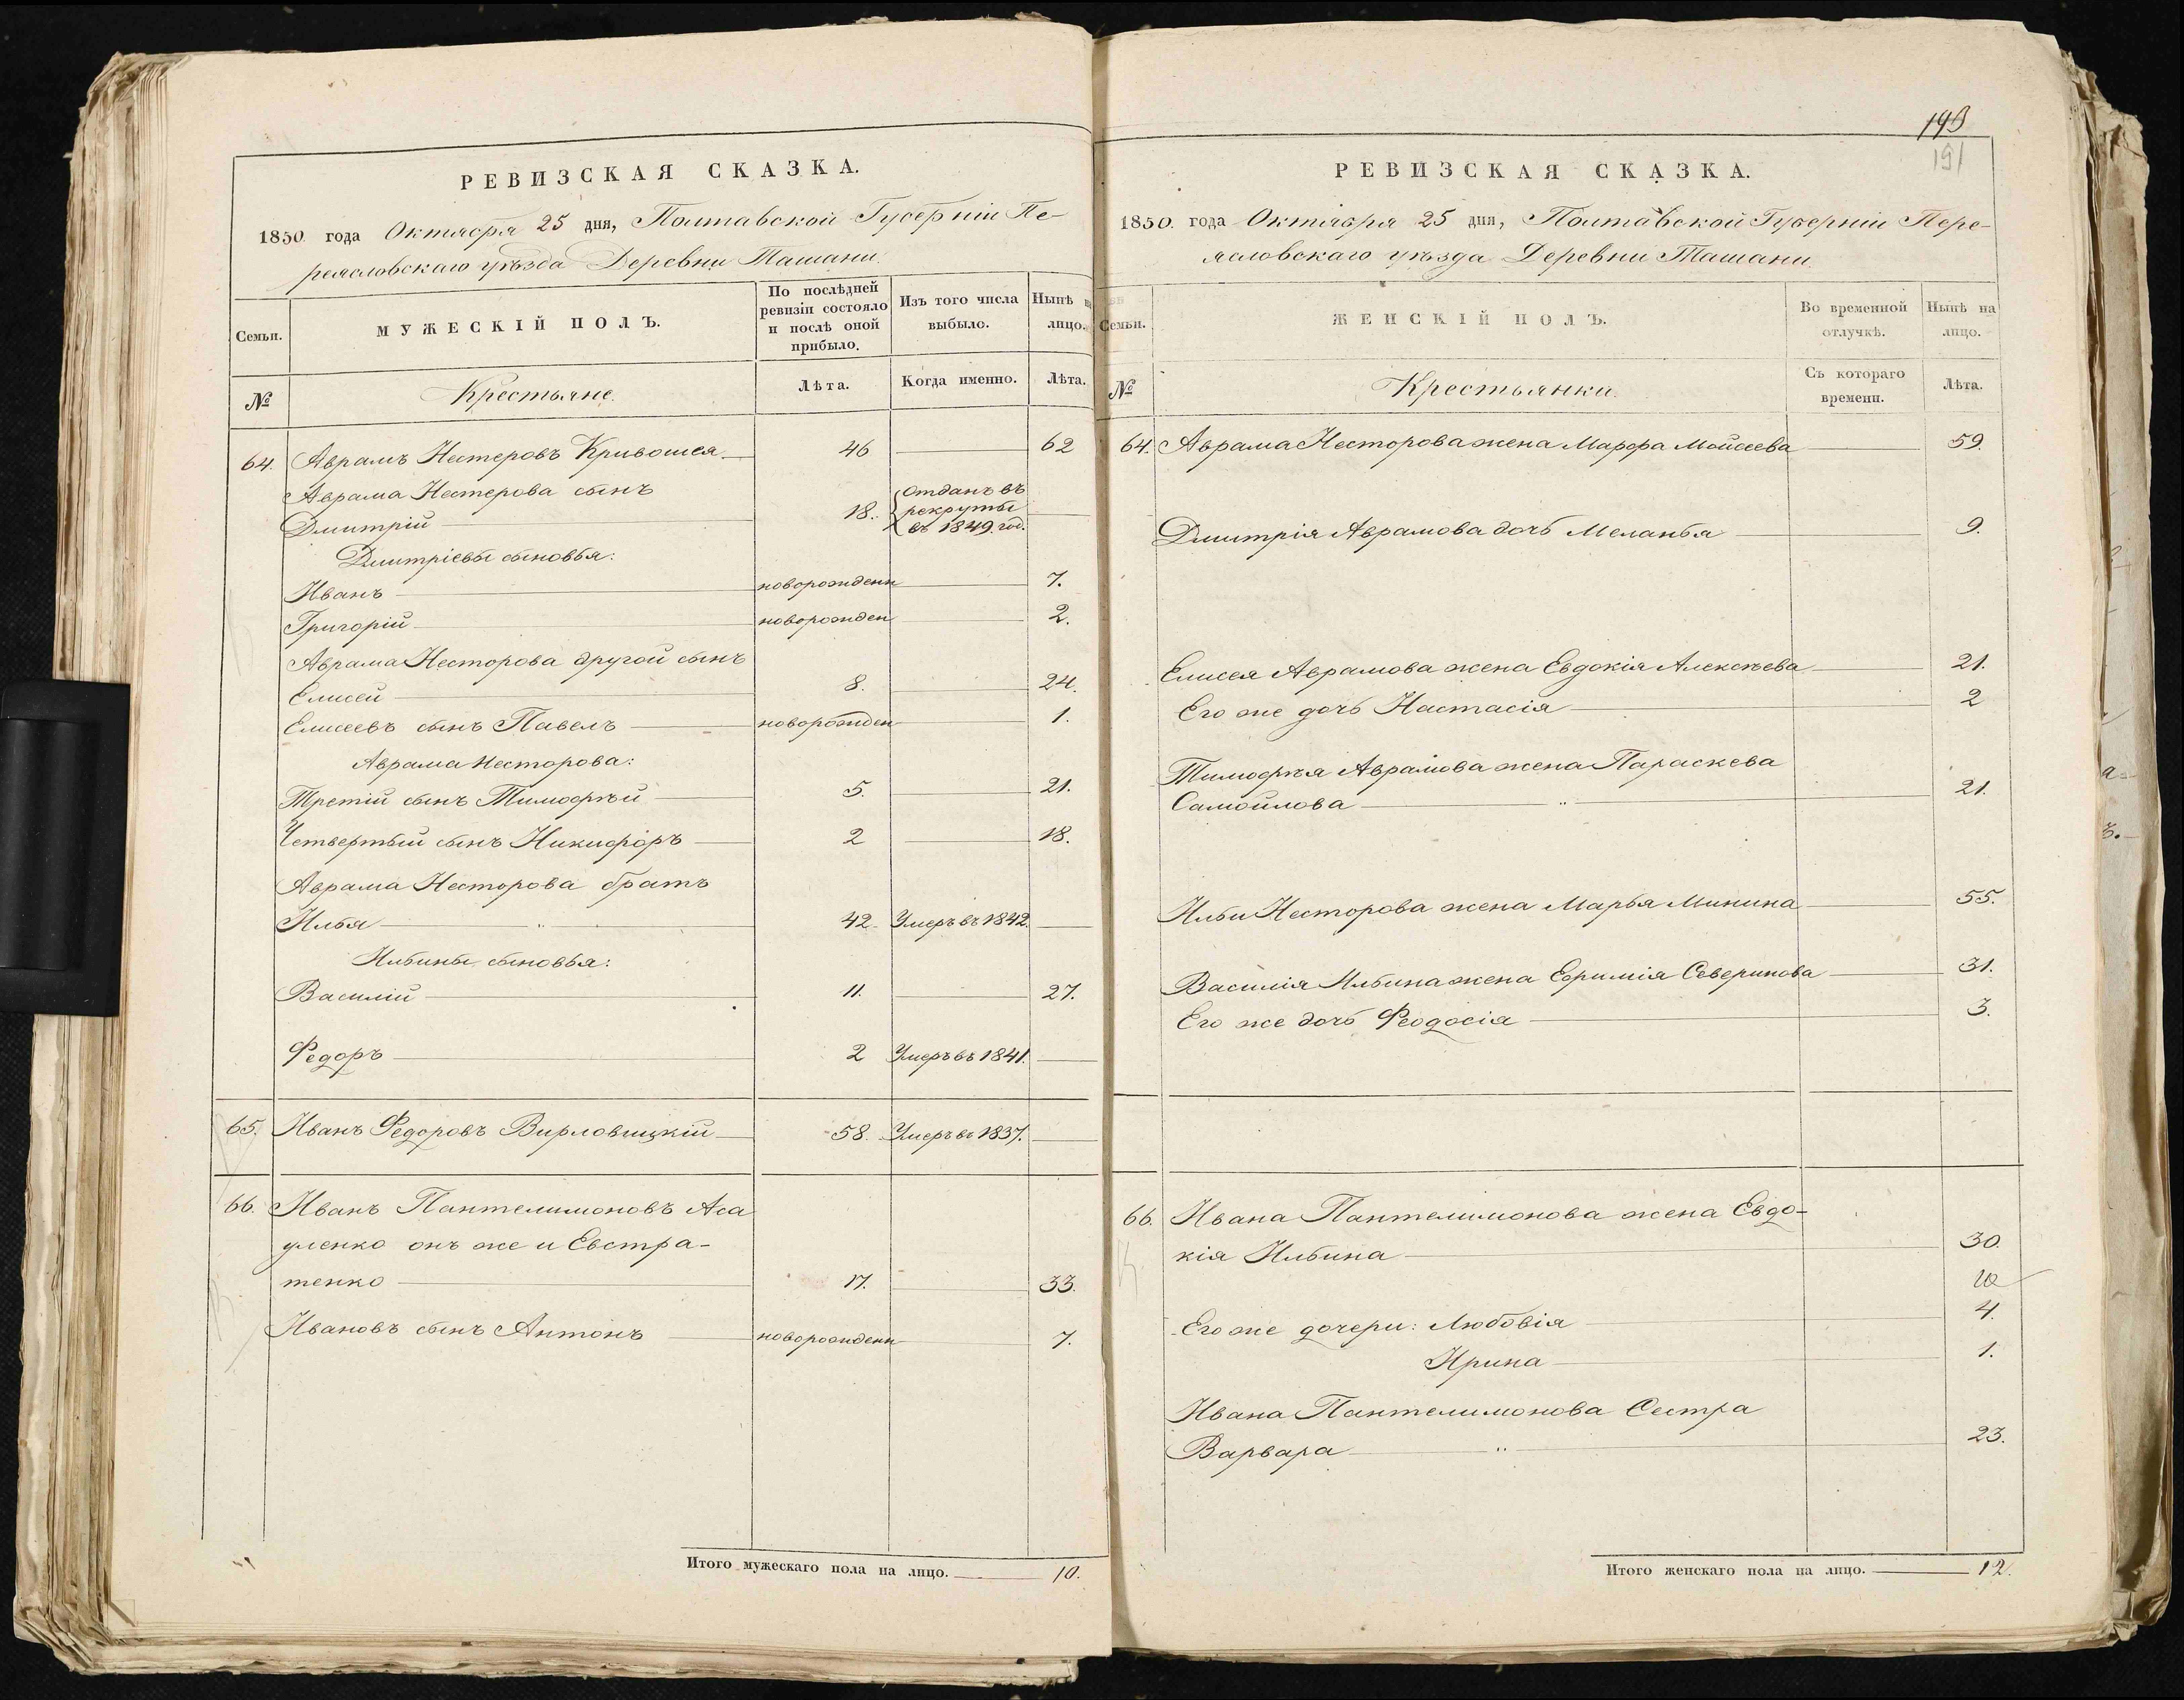 РЕВИЗСКАЯ СКАЗКА.
1850 года Октября 25 дня, Полтавской Губерніи Пе-
реясловскаго уѣзда Деревни Ташани.
Семьи.
МУЖЕСКІЙ ПОЛЪ.
По послѣдней ревизіи состояло и послѣ оной прибыло.
Изъ того числа выбыло.
Нынѣ на лицо.
№
Крестьяне.
Лѣта.
Когда именно.
Лѣта.
64. Аврамъ Нестеровъ Кривошея 46 62
Аврама Нестерова сынъ
Дмитрій 18. Отданъ въ рекруты въ 1849. год.
Дмитріевы сыновья:
Иванъ новорожденн 7.
Григорій новорожден 2.
Аврама Несторова другой сынъ
Елисей 8. 24.
Елисеевъ сынъ Павелъ новорожден 1.
Аврама Несторова:
Третій сынъ Тимофѣй 5. 21.
Четвертый сынъ Никифоръ 2 18.
Аврама Несторова братъ
Илья 42 Умеръ въ 1842.
Ильины сыновья:
Василій 11. 27.
Федоръ 2 Умеръ въ 1841.
65. Иванъ Федоровъ Вирловицкій 58. Умеръ въ 1837.
66. Иванъ Пантелимоновъ Аса
уленко онъ же и Евстра-
тенко 17. 33.
Ивановъ сынъ Антонъ новорожденн 7.
Итого мужескаго пола на лицо. 10.
193
191
РЕВИЗСКАЯ СКАЗКА.
1850. года Октября 25 дня, Полтавской Губерніи Пере-
ясловскаго уѣзда Деревни Ташани.
Семьи.
ЖЕНСКІЙ ПОЛЪ.
Во временной отлучкѣ.
Нынѣ на лицо.
№
Крестьянки.
Съ котораго времени.
Лѣта.
64. Аврама Несторова жена Марфа Мойсеева 59.
Дмитрія Аврамова дочь Меланья 9.
Елисея Аврамова жена Евдокія Алексѣева 21.
Его же дочь Настасія 2
Тимофѣя Аврамова жена Параскева
Самойлова 21.
Ильи Несторова жена Марья Минина 55.
Василія Ильина жена Ефимія Северинова 31.
Его же дочь Феодосія 3.
66. Ивана Пантелимонова жена Евдо-
кія Ильина 30.
Его же дочери: Любовія 4.
Ирина 1.
Ивана Пантелимонова Сестра
Варвара 23.
Итого женскаго пола на лицо. 12.